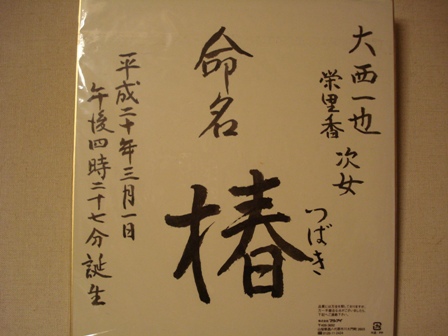 大西一也
栄里香 次女
つばき
命名
椿
平成二十年三月一日
午後四時二十七分誕生